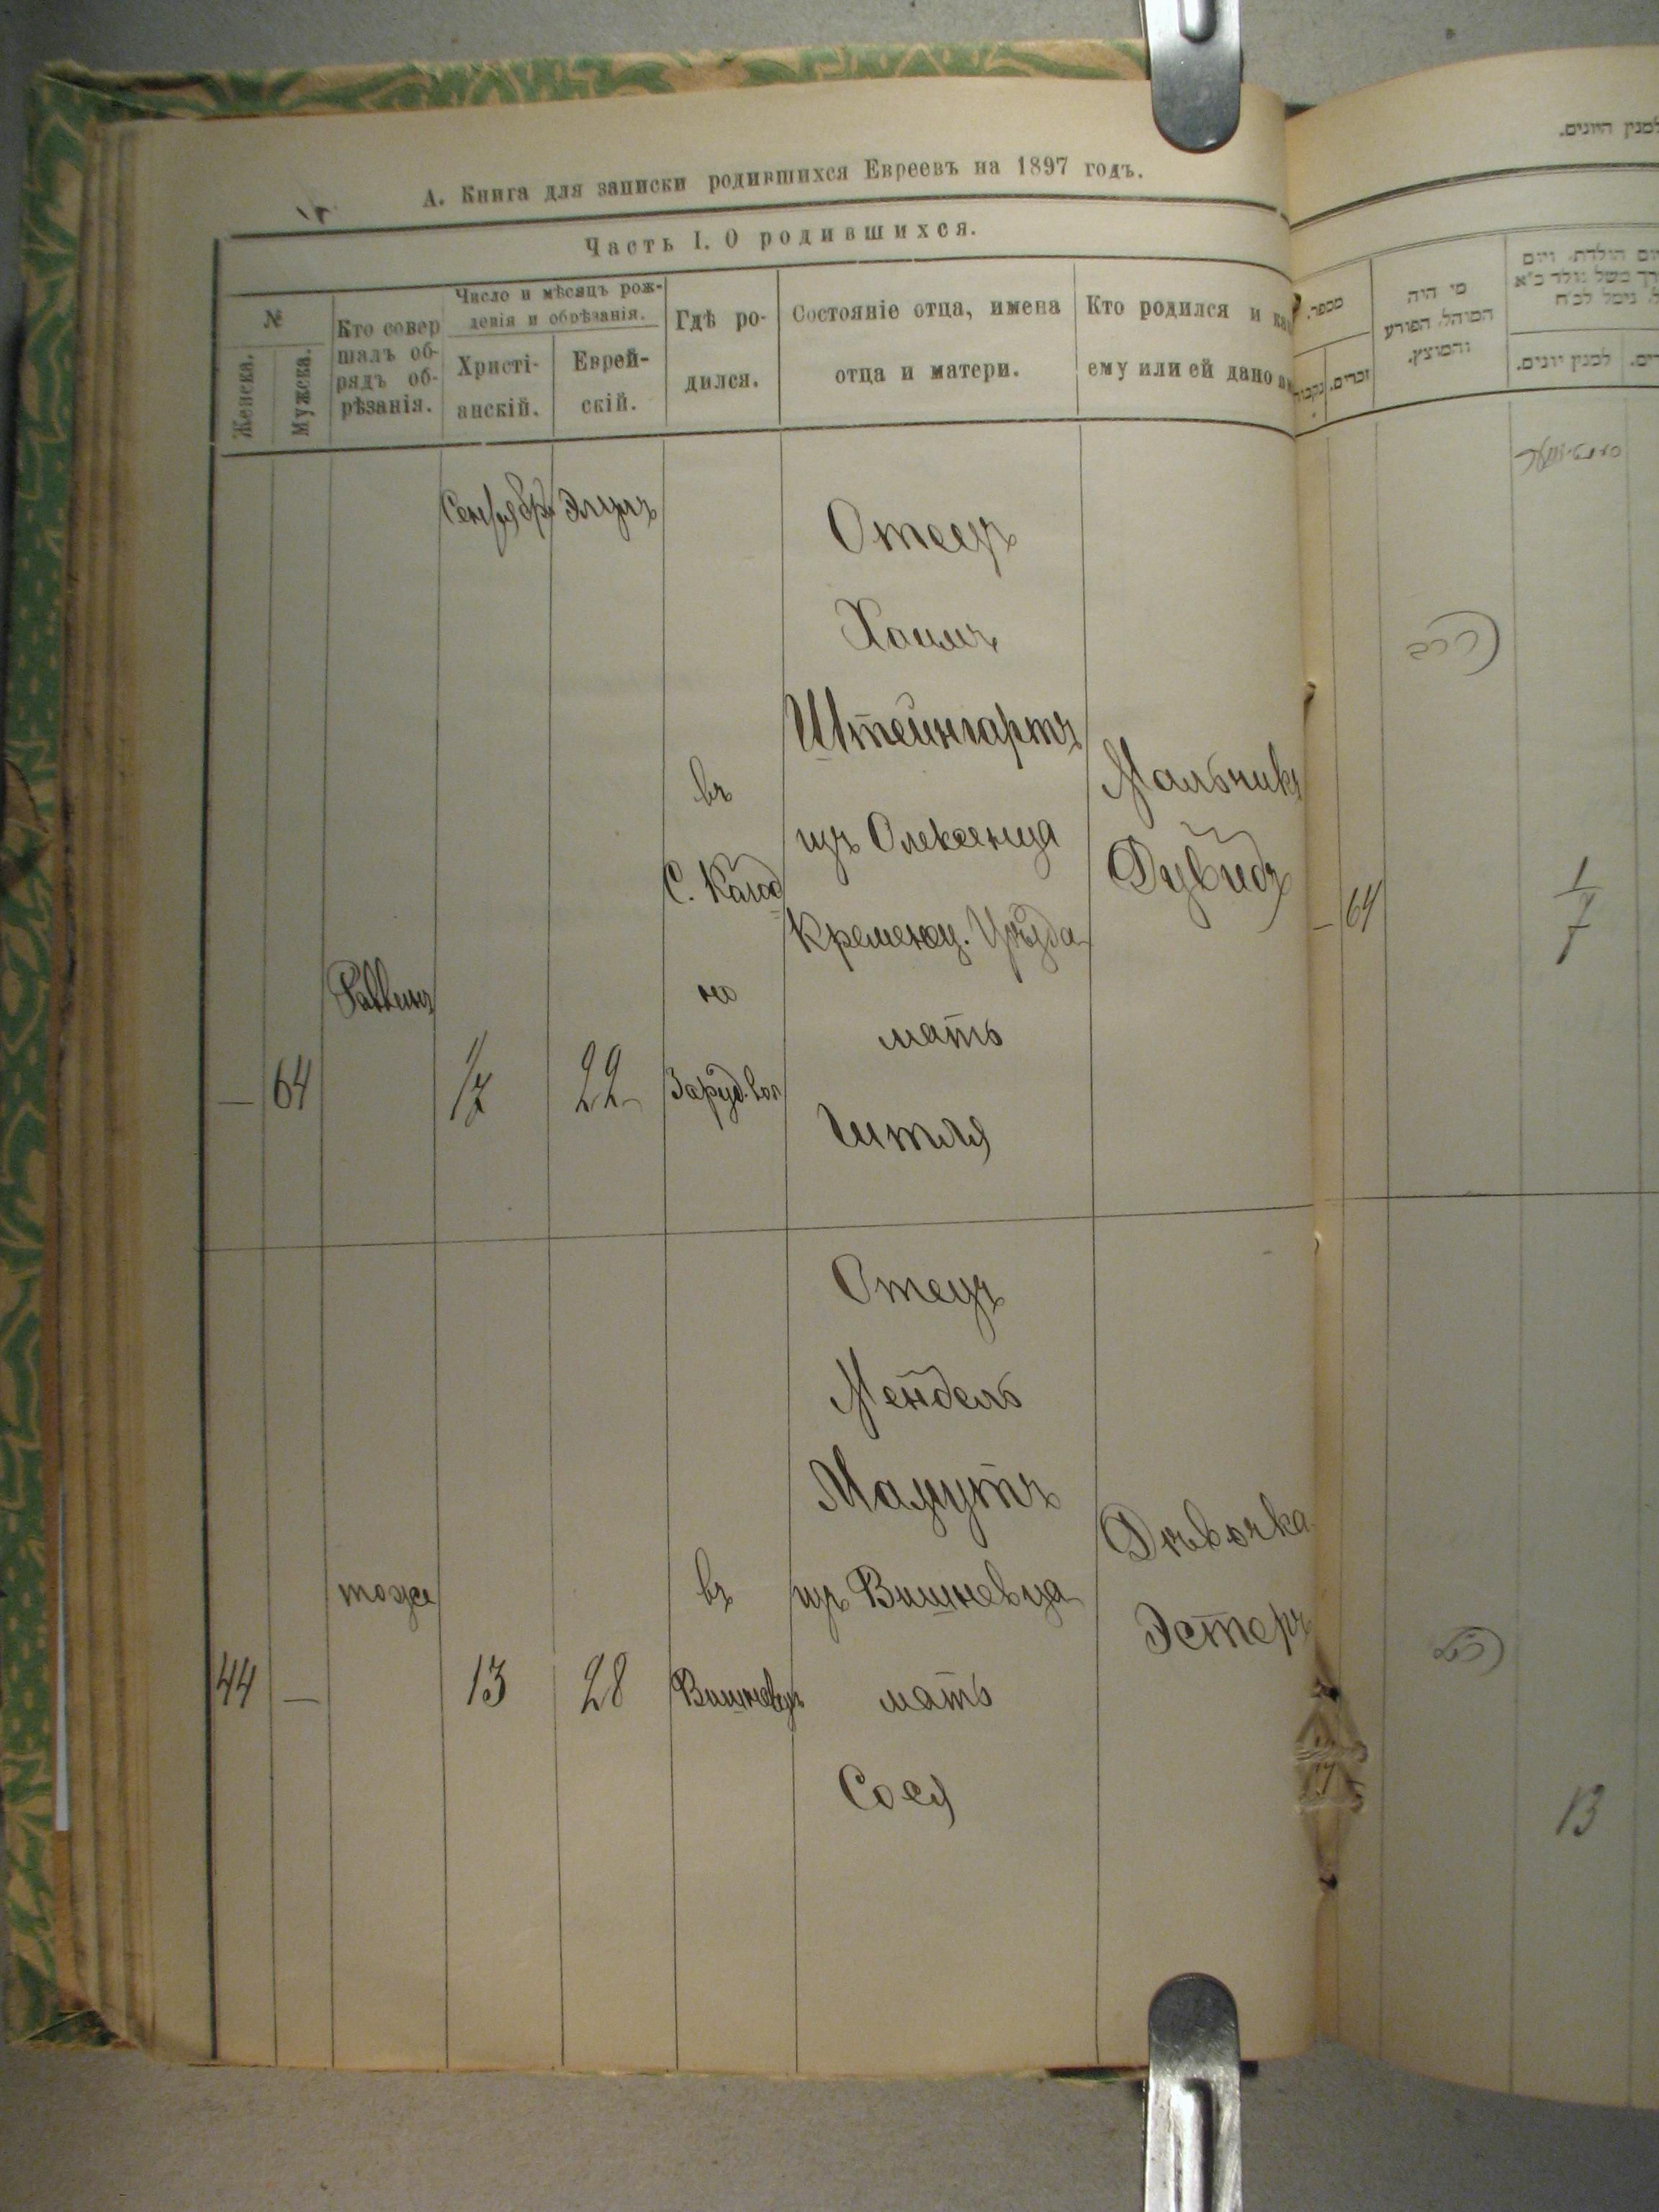 А. Книга для записки родившихся Евреевъ на 1897 годъ.
Часть I. О родившихся.
№
Женска.
Мужска.
Кто совер
шалъ об-
рядъ об-
рѣзанія.
Число и мѣсяцъ рож-
денія и обрѣзанія.
Христі-
анскій.
Еврей-
скій.
Гдѣ ро-
дился.
Состояніе отца, имена
отца и матери.
Кто родился и
ему или ей дано
Сентябрь
Элулъ
—
64
Раввинъ
1/7
22
въ
С. Колод
но
Заруд. вол
Отецъ
Хаимъ
Штейнгартъ
изъ Олексенца
Кременец. Уѣзда
мать
Гитля
Мальчикъ
Дувидъ
44
—
тоже
13
28
въ
Вишневцѣ
Отецъ
Мендель
Мазутъ
изъ Вишневца
мать
Сося
Дѣвочка
Эстеръ
למנין היונים.
מספר.
זכרים.
מי היה
המוהל, הפורע
והמוצץ.
יום הולדת, ויום
למנין יונים.
— 64
1
7
13